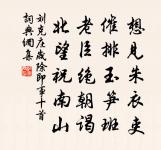 想見朱衣吏
催排玉笋班
老臣絶朝謁
北望祝南山
劉克庄歲除即事十首
詞典網集